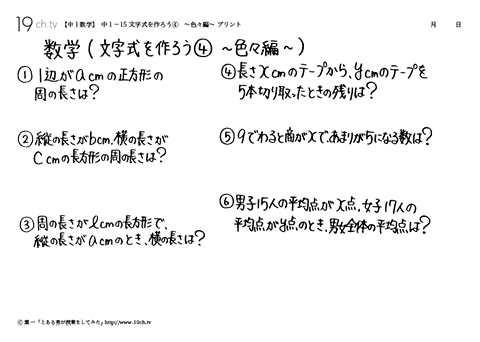 19ch.tv 【中1数学】 中1−15 文字式を作ろう④ ～色々編～ プリント 月 日
数学(文字式を作ろう④ ～色々編～)
①1辺がacmの正方形の
周の長さは?
②縦の長さがbcm、横の長さが
Ccmの長方形の周の長さは?
③周の長さがlcmの長方形で、
縦の長さがacmのとき、横の長さは?
④長さxcmのテープから、ycmのテープを
5本切り取ったときの残りは?
⑤9でわると商がxで、あまりが5になる数は?
⑥男子15人の平均点がx点、女子17人の
平均点がy点のとき、男女全体の平均点は?
© 葉一「とある男が授業をしてみた」http://www.19ch.tv